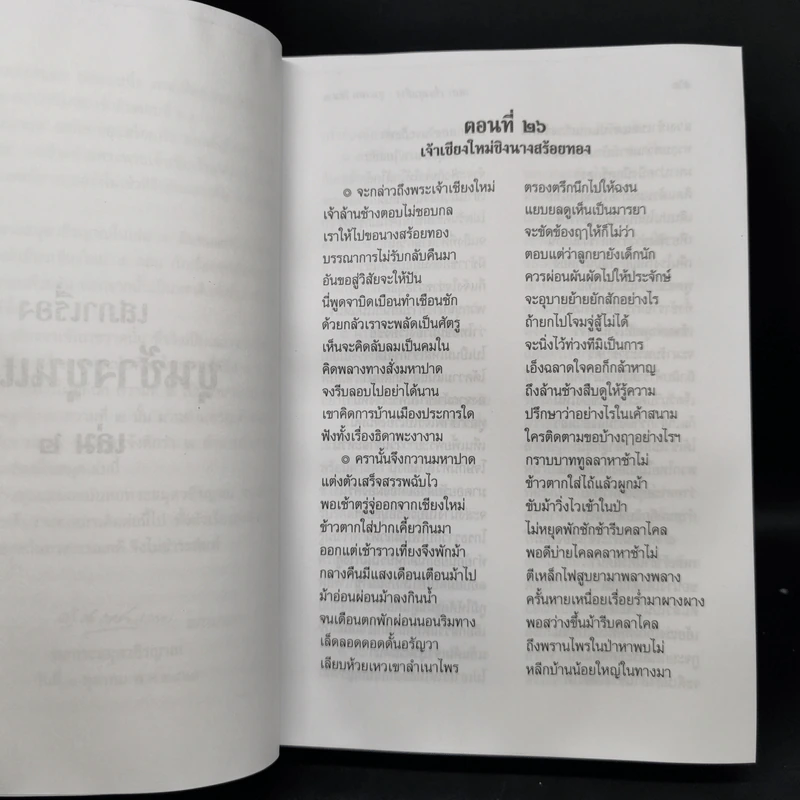 ตอนที่ ๒๖
เจ้าเชียงใหม่ชิงนางสร้อยทอง
๏ จะกล่าวถึงพระเจ้าเชียงใหม่ ตรองตรึกนึกไปให้ฉงน
เจ้าล้านช้างตอบไม่ชอบกล แยบยลดูเห็นเป็นมารยา
เราให้ไปขอนางสร้อยทอง จะขัดข้องฤๅให้ก็ไม่ว่า
บรรณาการไม่รับกลับคืนมา ตอบแต่ว่าลูกยายังเด็กนัก
อันขอสู่วิสัยจะให้ปัน ควรผ่อนผันผัดไปให้ประจักษ์
นี่พูดจาบิดเบือนทำเชือนชัก จะอุบายย้ายยักสักอย่างไร
ด้วยกลัวเราจะพลัดเป็นศัตรู ถ้ายกไปโจมจู่สู้ไม่ได้
เห็นจะคิดลับลมเป็นคมใน จะนิ่งไว้ท่วงทีมิเป็นการ
คิดพลางทางสั่งมหาปาด เอ็งฉลาดใจคอก็กล้าหาญ
จงรีบลอบไปอย่าได้นาน ถึงล้านช้างสืบดูให้รู้ความ
เขาคิดการบ้านเมืองประการใด ปรึกษาว่าอย่างไรในเค้าสนาม
ฟังทั้งเรื่องธิดาพะงางาม ใครติดตามขอบ้างฤๅอย่างไรฯ
๏ ครานั้นจึงกวานมหาปาด กราบบาททูลลาหาช้าไม่
แต่งตัวเสร็จสรรพฉับไว ข้าวตากใส่ไถ้แล้วผูกม้า
พอเช้าตรู่จู่ออกจากเชียงใหม่ ขับม้าวิ่งไวเข้าในป่า
ข้าวตากใส่ปากเคี้ยวกินมา ไม่หยุดพักชักช้ารีบคลาไคล
ออกแต่เช้าราวเที่ยงจึงพักม้า พอดีบ่ายไคลคลาหาช้าไม่
กลางคืนมีแสงเดือนเตือนม้าไป ตีเหล็กไฟสูบยามาพลางพลาง
ม้าอ่อนผ่อนม้าลงกินน้ำ ครั้นหายเหนื่อยเรื่อยร่ำมาผางผาง
จนเดือนตกพักผ่อนนอนริมทาง พอสว่างขึ้นม้ารีบคลาไคล
เล็ดลอดดอดดั้นอรัญวา ถึงพรานไพรในป่าหาพบไม่
เลียบห้วยเหวเขาลำเนาไพร หลีกบ้านน้อยใหญ่ในทางมา